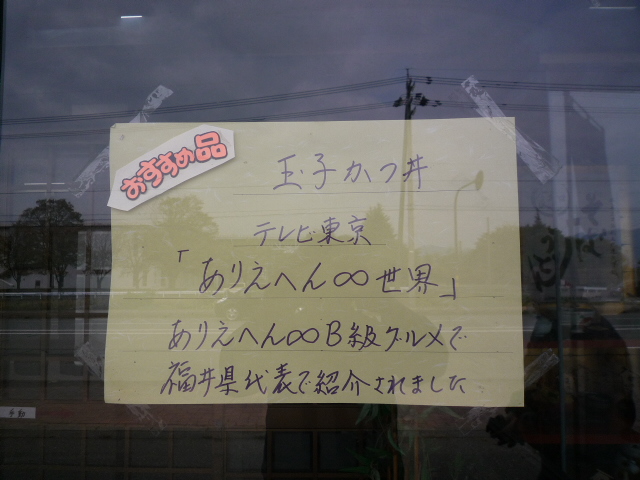 おすすめ品
玉子かつ丼
テレビ東京
「ありえへん∞世界」
ありえへん∞B級グルメで
福井県代表で紹介されました